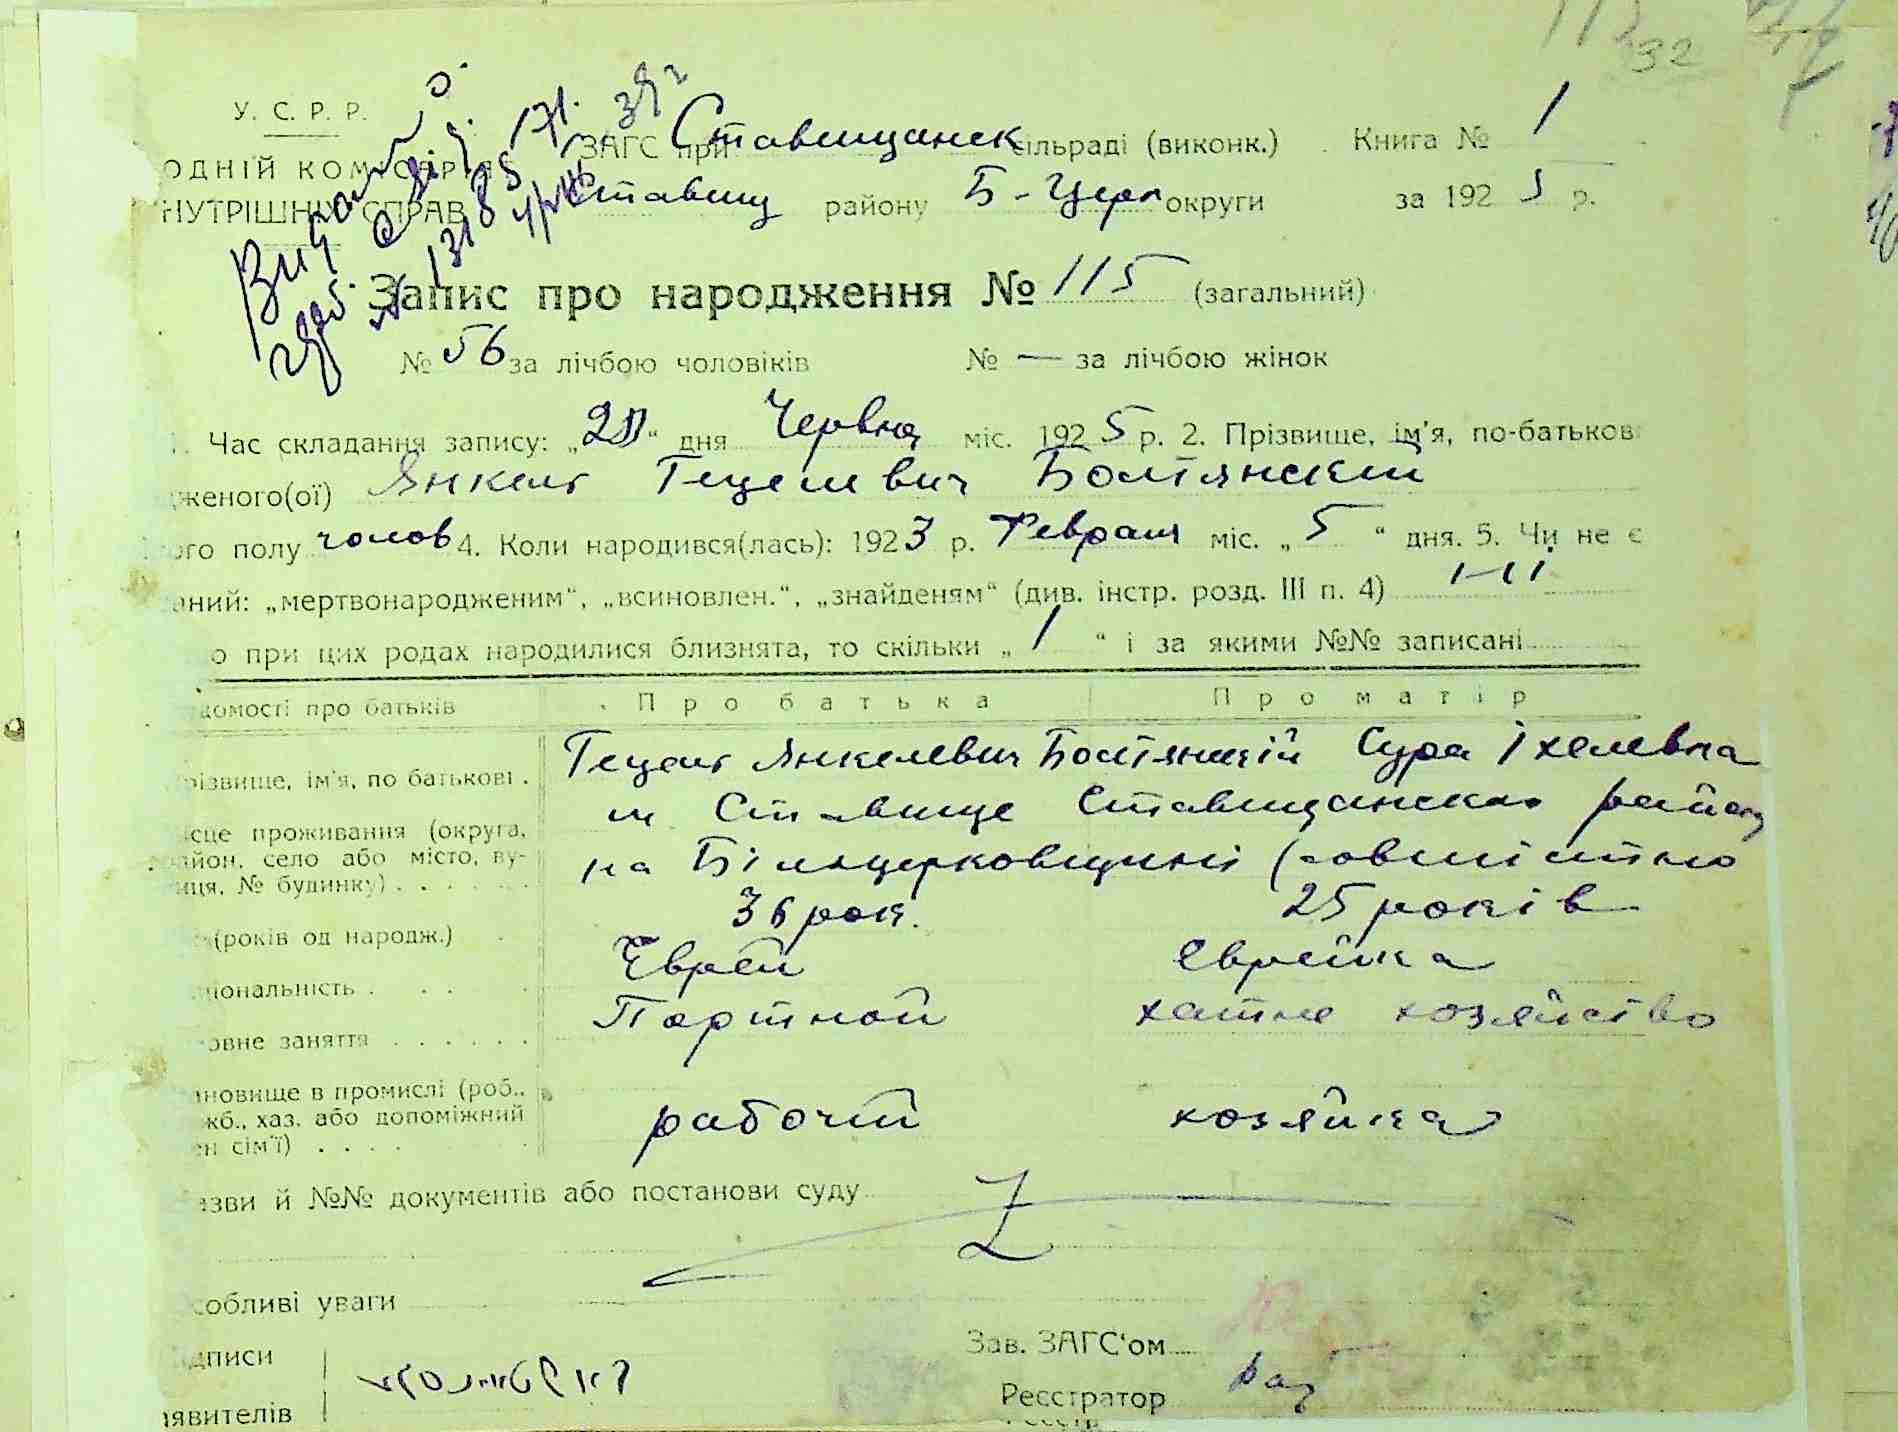 113 32
У. С. Р. Р.
ОДНІЙ КОМІСАРІЯ
НУТРІШНІХ СПРАВ
ЗАГС при Ставищанск сільраді (виконк.) Книга № 1
Ставищ району Б-Церк округи за 192 5 р.
Запис про народження № 115 (загальний)
№ 56 за лічбою чоловіків № — за лічбою жінок
1. Час складання запису: „20“ дня Червня міс. 192 5 р. 2. Прізвище, ім'я, по-батькові
дженого(ої) Янкель Гецелевич Болтянский
ого полу чолов 4. Коли народився(лась): 192 3 р. Февраля міс. „ 5 “ дня. 5. Чи не є
аний: „мертвонародженим“, „всиновлен.“, „знайденям“ (див. інстр. розд. III п. 4)
о при цих родах народилися близнята, то скільки „ 1 “ і за якими №№ записані
домості про батьків Про батька Про матір
різвище, ім'я, по батькові . Гецель Янкелевич Болтянский Сура Іхелевна
ісце проживання (округа, м Ставище Ставищанского району
район, село або місто, ву- на Білоцерковщині (
иця, № будинку) . . . . . .
(років од народж.) 36 рок. 25 років
ціональність . . . . Еврей Еврейка
овне заняття . . . . . . Портной хатне хозяйство
ановище в промислі (роб.,
жб., хаз. або допоміжний рабочий хозяйка
ен сім'ї) . . . .
азви й №№ документів або постанови суду Z
собливі уваги
Зав. ЗАГС'ом
ідписи
Реєстратор
аявителів